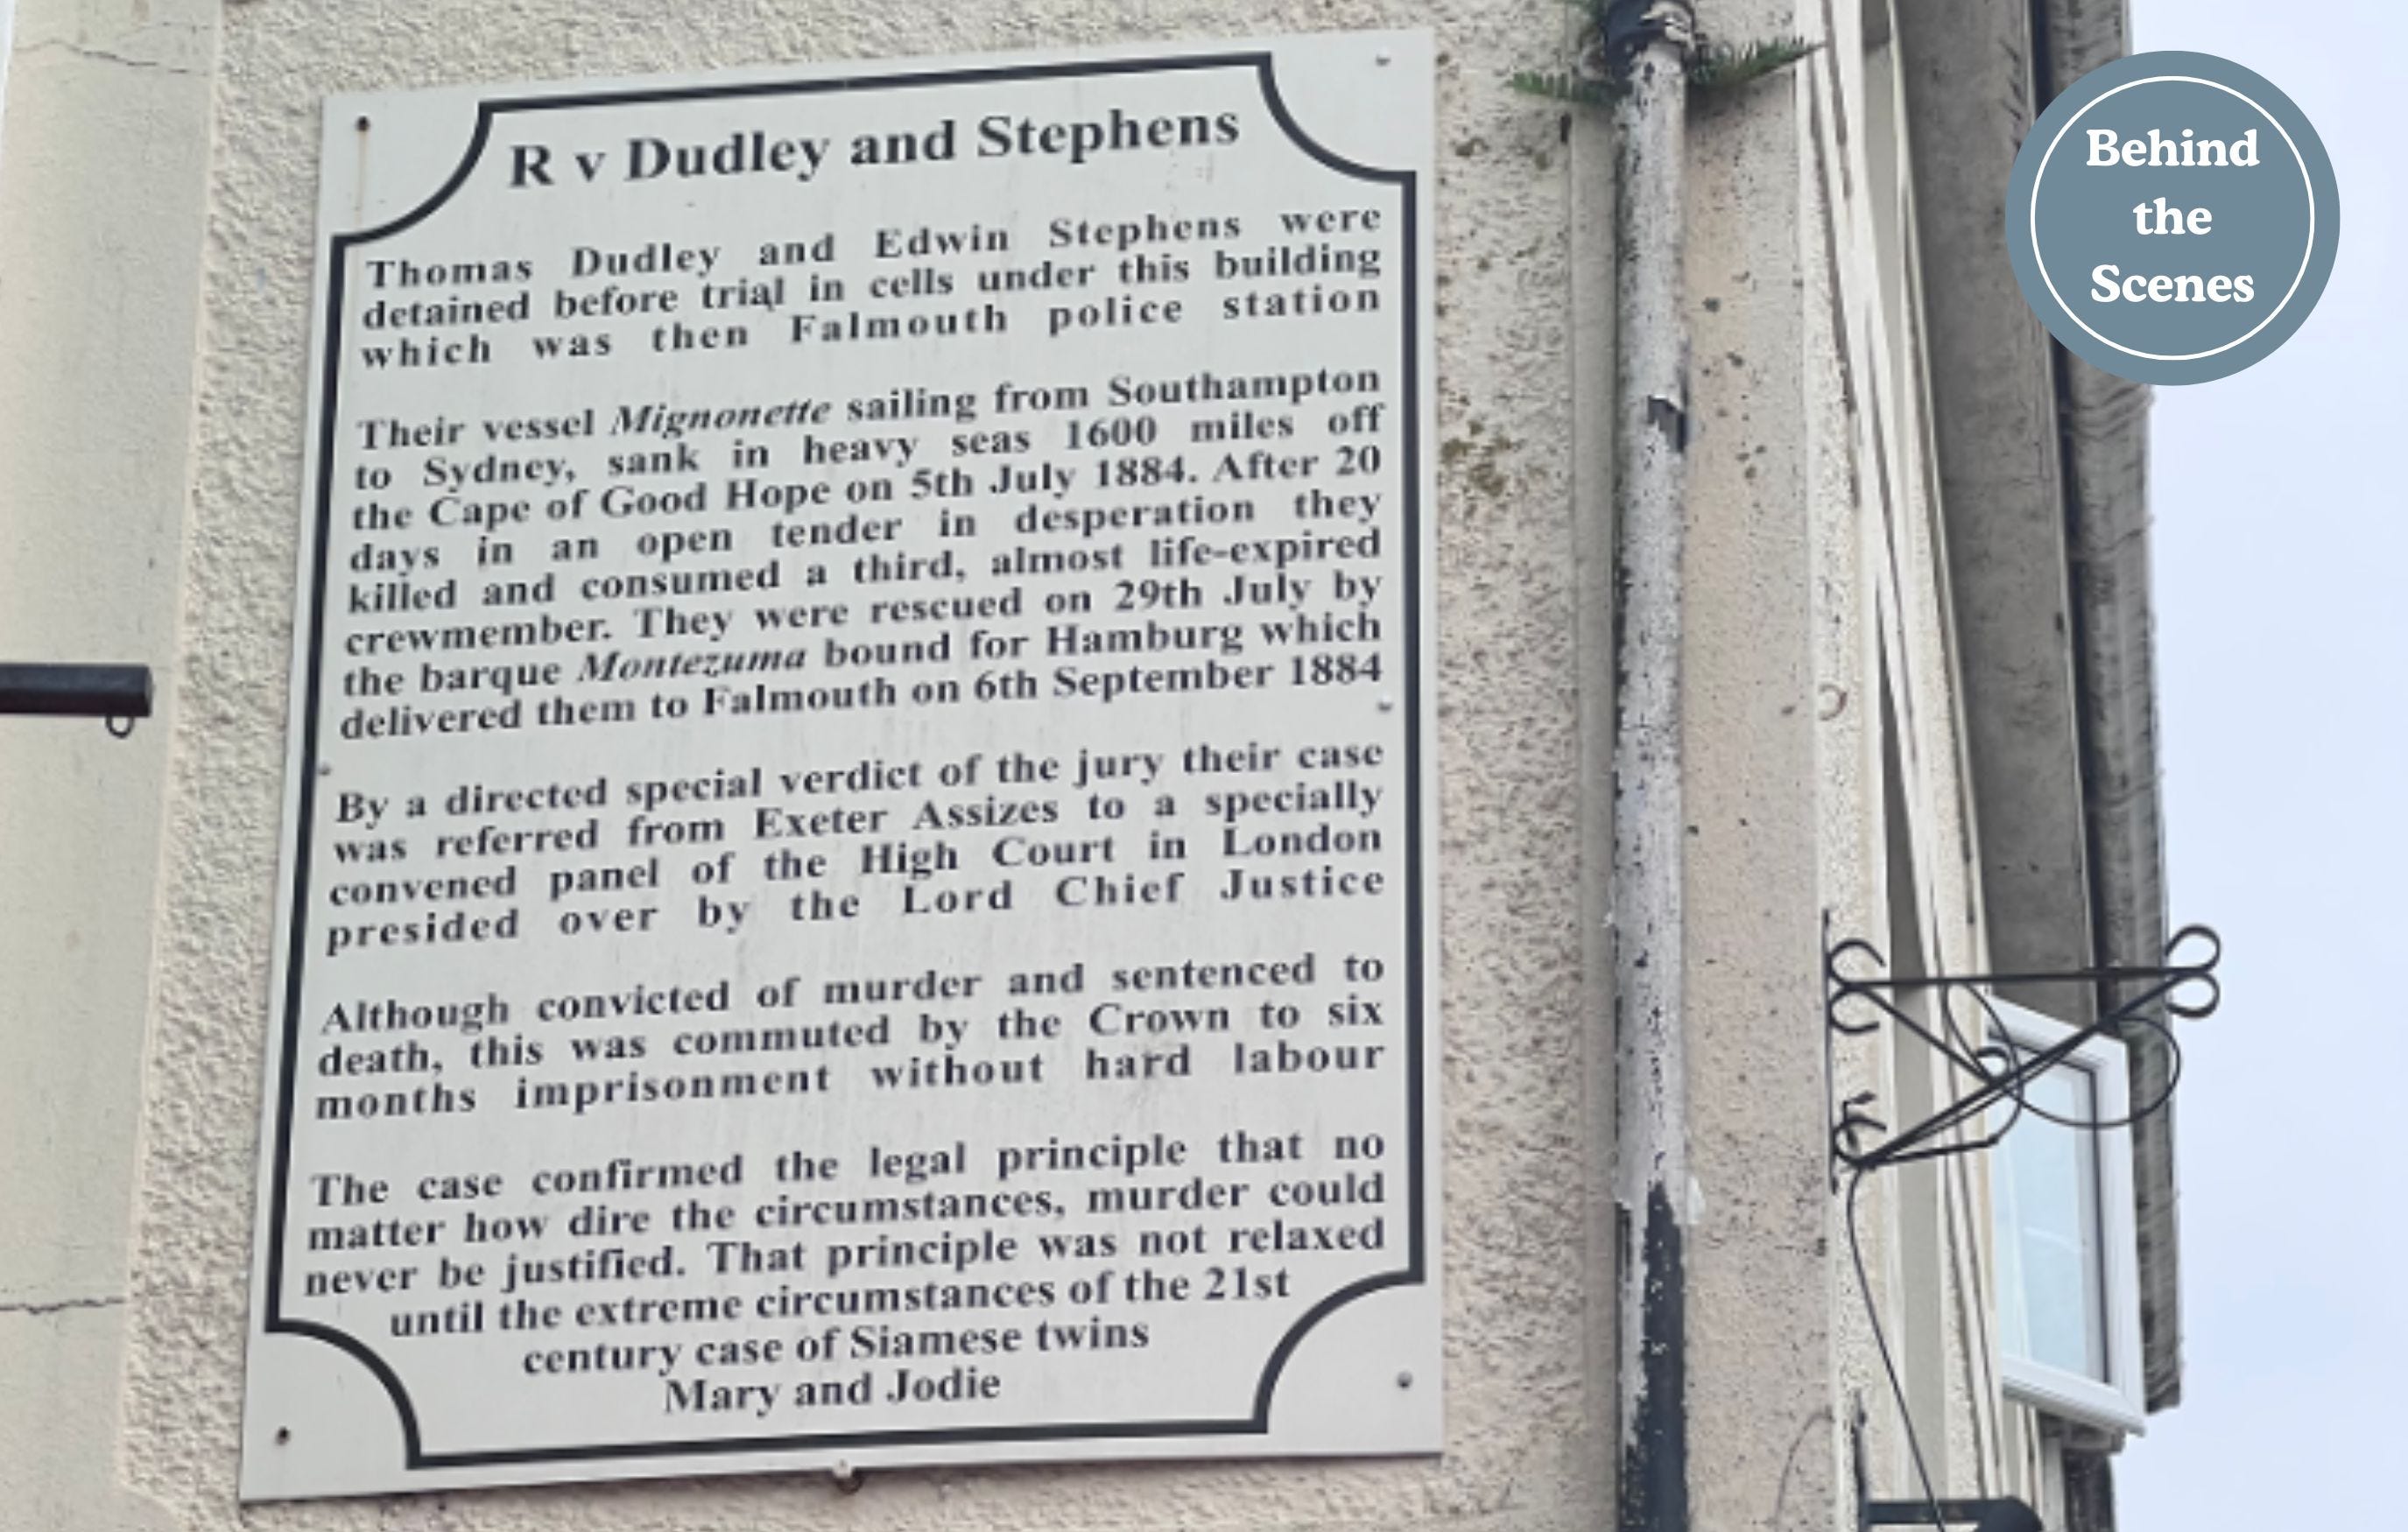 R v Dudley and Stephens
Thomas Dudley and Edwin Stephens were
detained before trial in cells under this building
which was then Falmouth police station
Their vessel Mignonette sailing from Southampton
to Sydney, sank in heavy seas 1600 miles off
the Cape of Good Hope on 5th July 1884. After 20
days in an open tender in desperation they
killed and consumed a third, almost life-expired
crewmember. They were rescued on 29th July by
the barque Montezuma bound for Hamburg which
delivered them to Falmouth on 6th September 1884
By a directed special verdict of the jury their case
was referred from Exeter Assizes to a specially
convened panel of the High Court in London
presided over by the Lord Chief Justice
Although convicted of murder and sentenced to
death, this was commuted by the Crown to six
months imprisonment without hard labour
The case confirmed the legal principle that no
matter how dire the circumstances, murder could
never be justified. That principle was not relaxed
until the extreme circumstances of the 21st
century case of Siamese twins
Mary and Jodie
Behind
the
Scenes